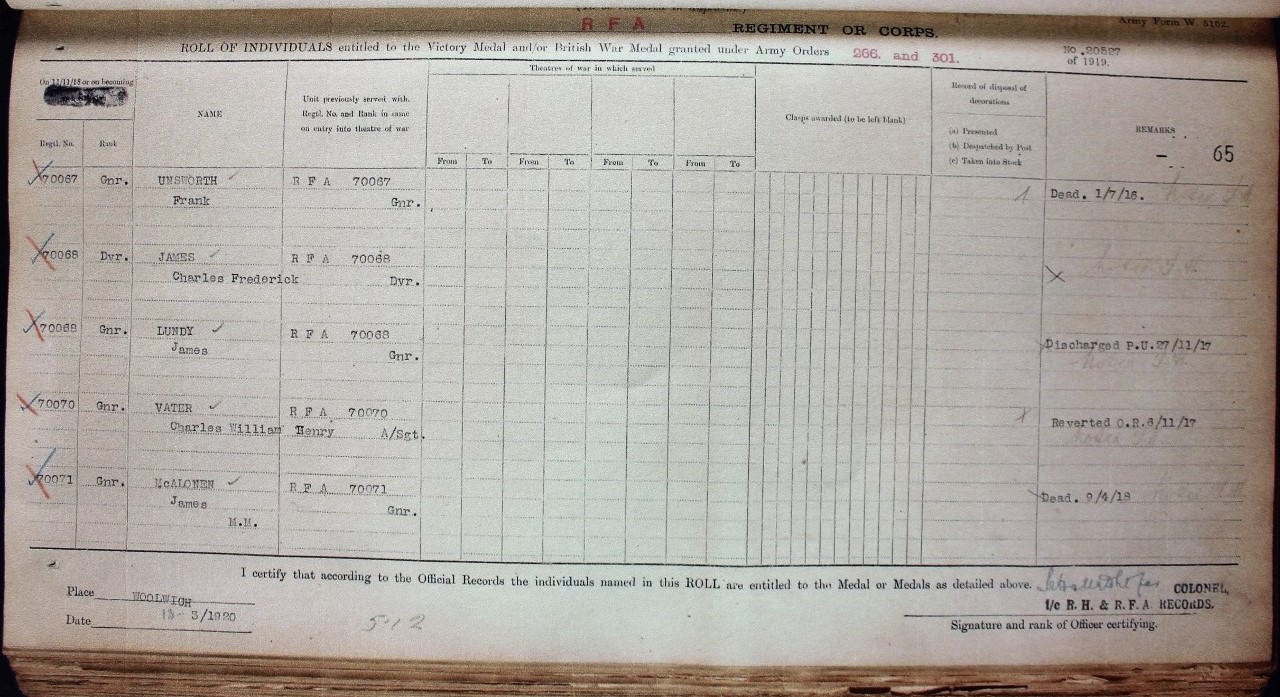 R F A REGIMENT OR CORPS. Army Form W. 5162.
ROLL OF INDIVIDUALS entitled to the Victory Medal and/or British War Medal granted under Army Orders 266. and 301.
No .20527
of 1919.
On 11/11/18 or on becoming
Regtl. No. Rank
NAME
Unit previously served with.
Regtl. No. and Rank in same
on entry into theatre of war
Theatres of war in which served
From To From To From To From To
Clasps awarded (to be left blank)
Record of disposal of
decorations
(a) Presented
(b) Despatched by Post
(c) Taken into Stock
REMARKS
- 65
70067 Gnr. UNSWORTH R F A 70067
Frank Gnr.
1 Dead. 1/7/16.
70068 Dvr. JAMES R F A 70068
Charles Frederick Dvr.
70068 Gnr. LUNDY R F A 70068
James Gnr.
Discharged P.U.27/11/17
70070 Gnr. VATER R F A 70070
Charles William Henry A/Sgt.
Reverted O.R.6/11/17
70071 Gnr. McALONEN R F A 70071
James Gnr.
M.M.
Dead. 9/4/18
I certify that according to the Official Records the individuals named in this ROLL are entitled to the Medal or Medals as detailed above.
COLONEL,
i/c R. H. & R. F. A RECORDS.
Signature and rank of Officer certifying.
Place WOOLWICH
Date 3/1920
512